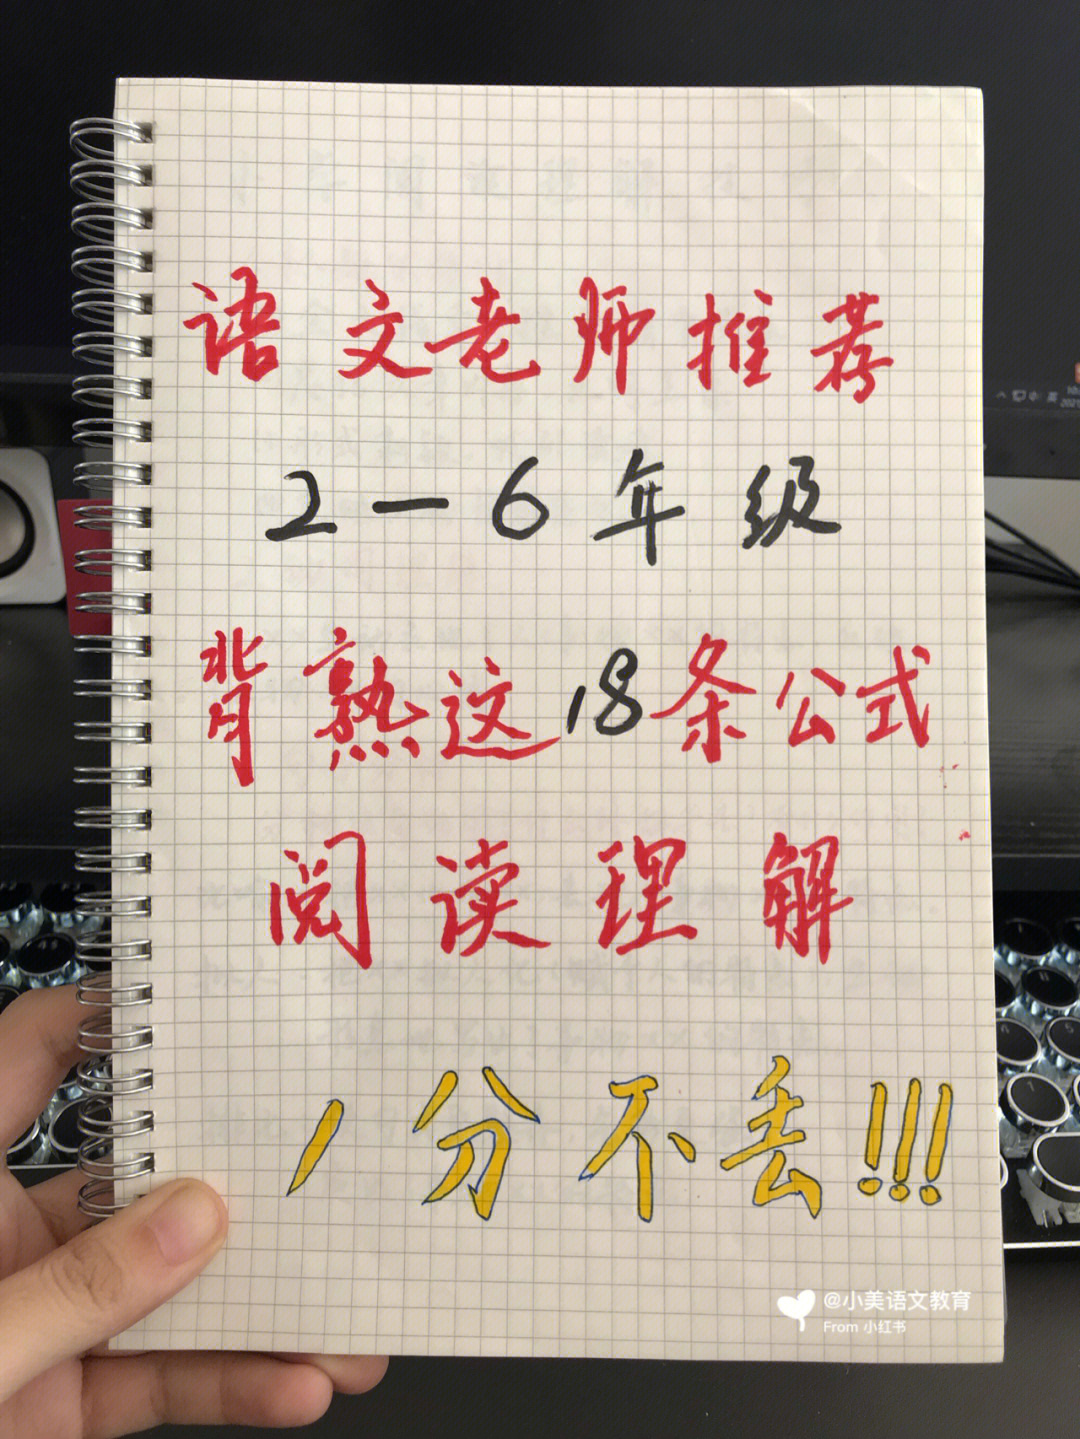 语文老师推荐
2-6年级
背熟这18条公式
阅读理解
1分不丢!!!
@小美语文教育
From 小红书